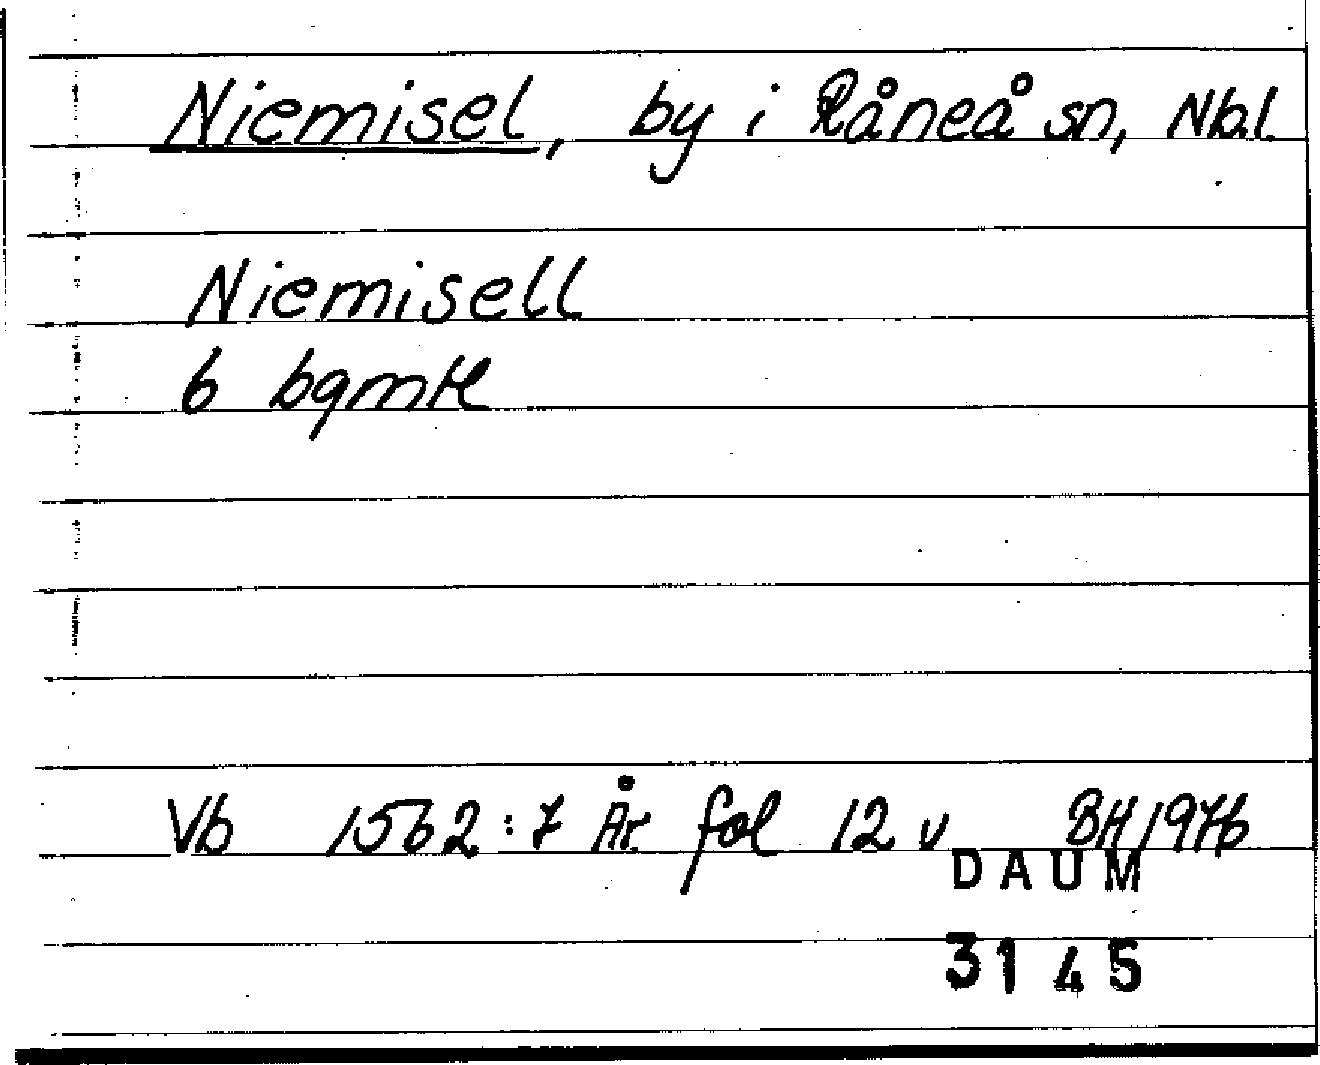 Niemisel, by i Råneå sn, Nb.l.
Niemisell
6 bgmtl
Vb 1562:7 År fol 12 v BH 1976
DAUM
3145